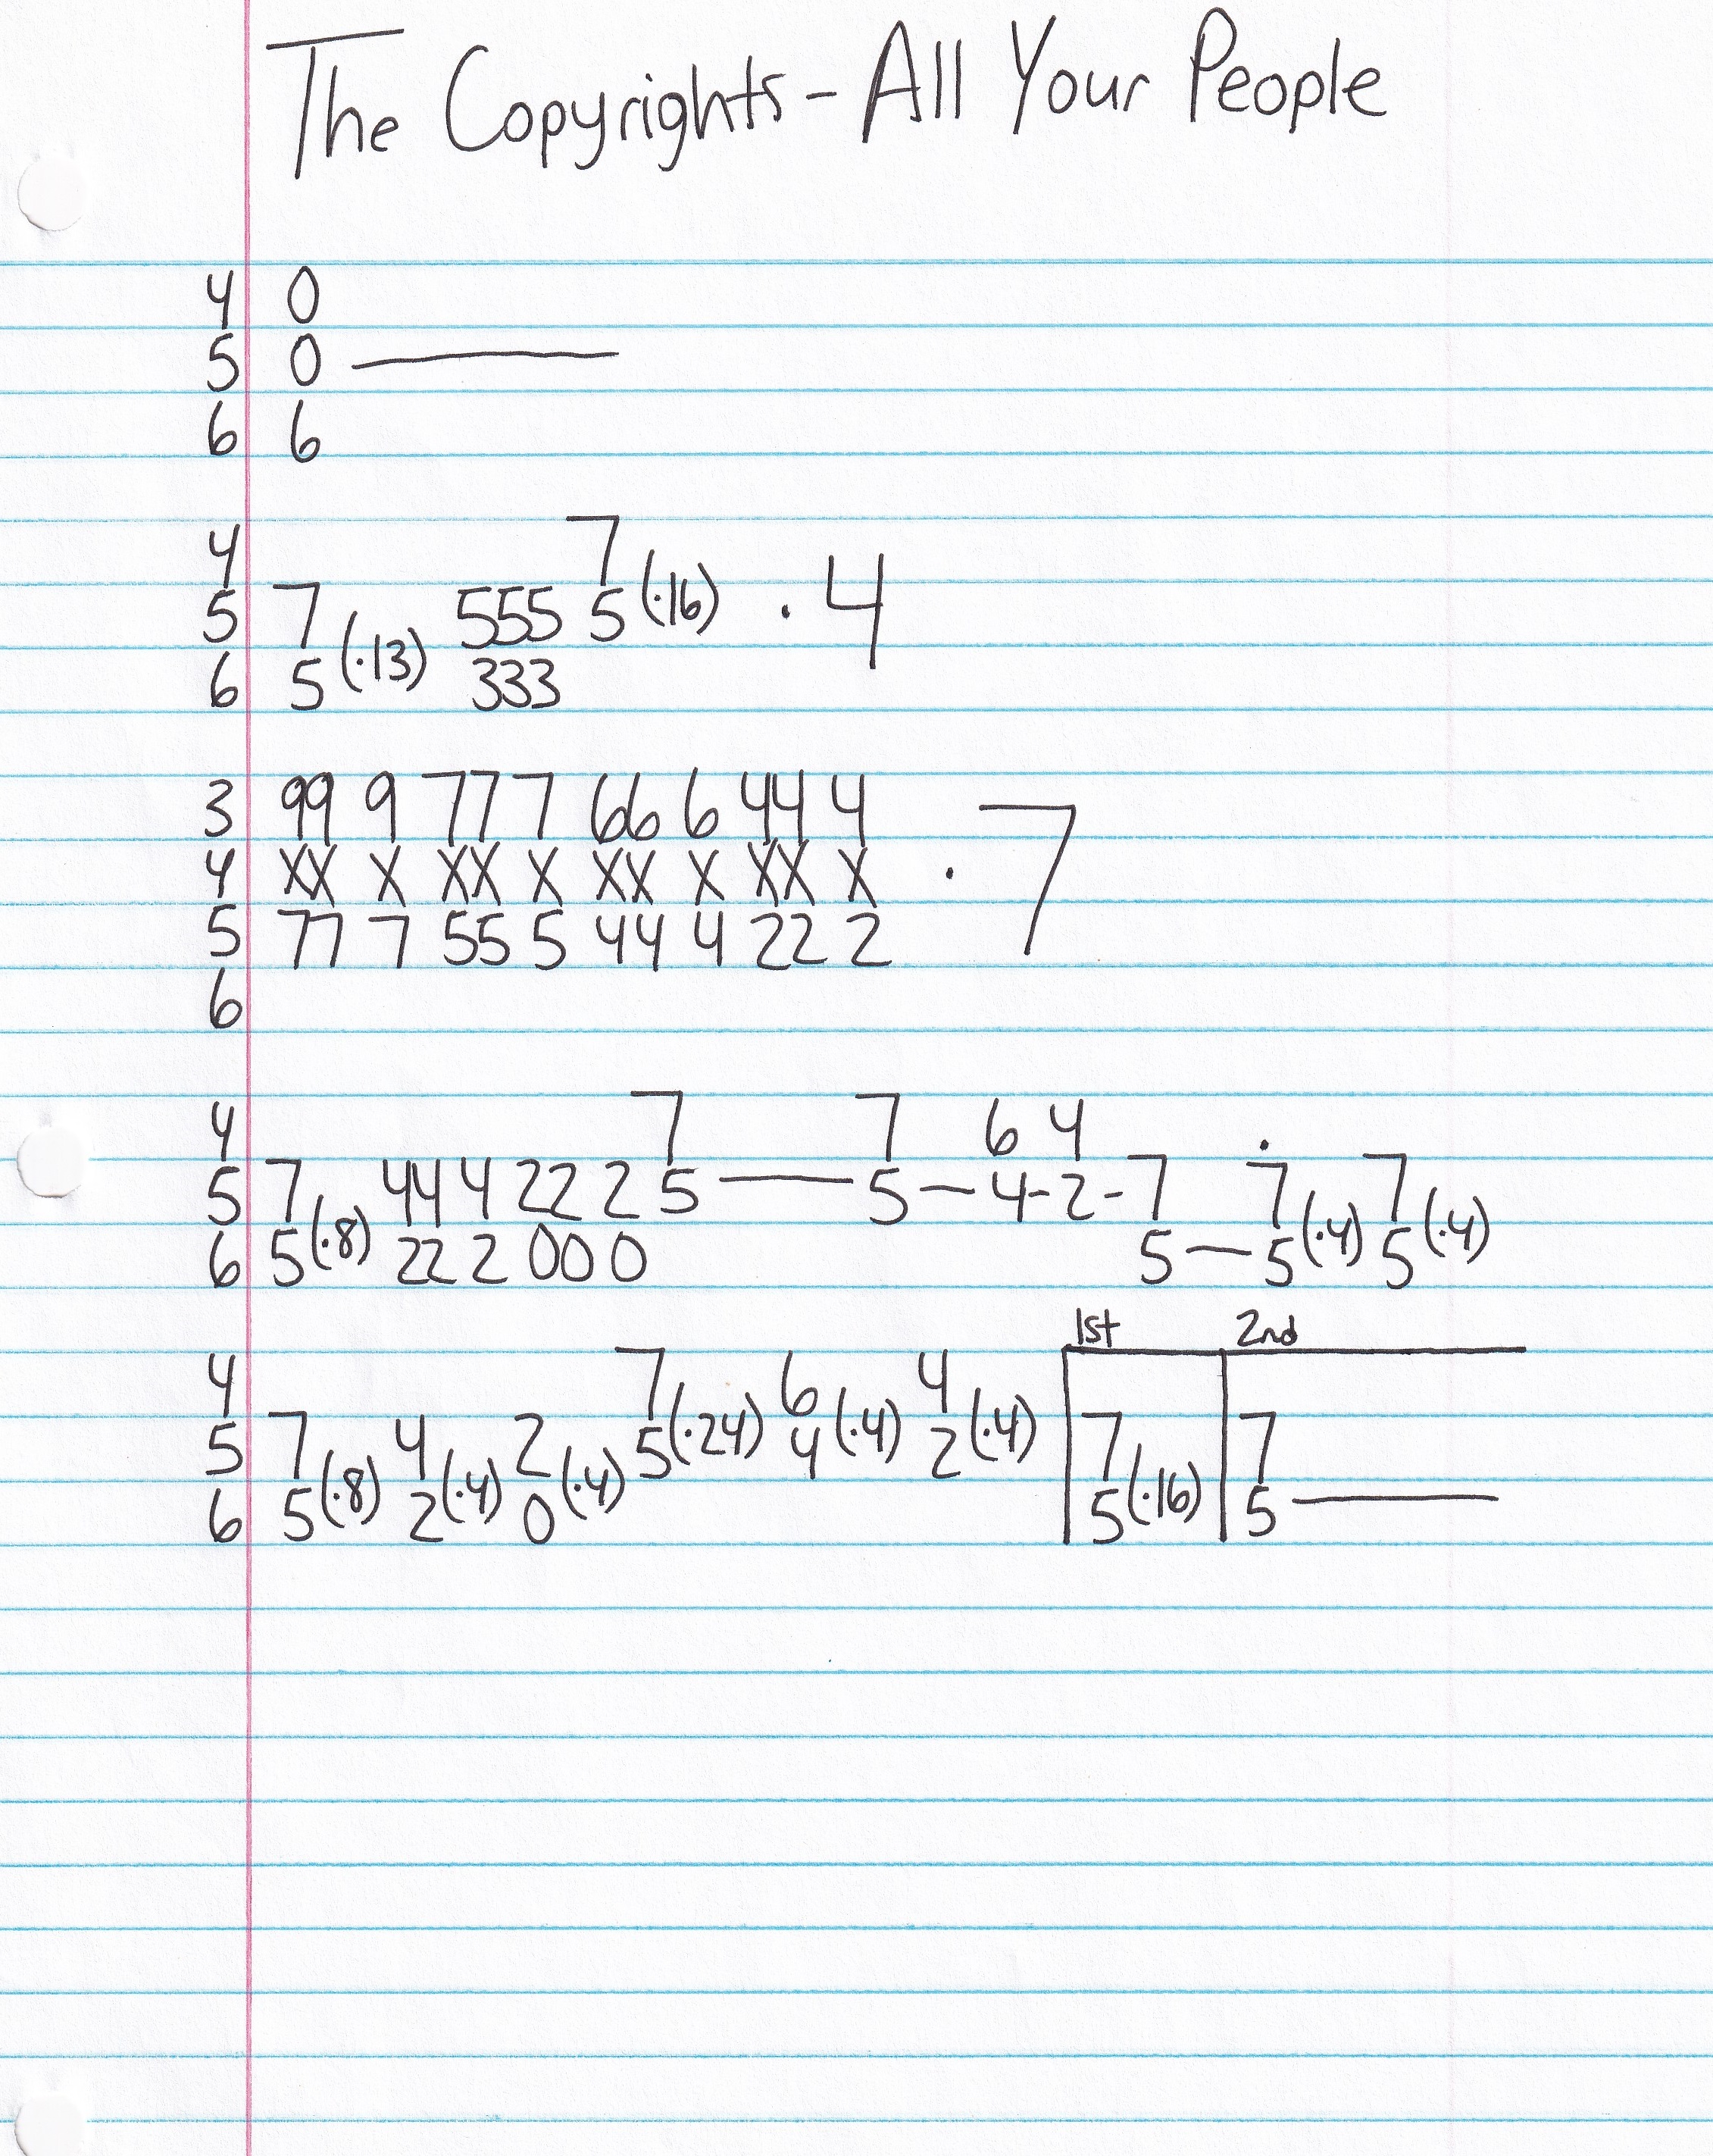 The Copyrights - All Your People
4 0
5 0 ———
6 6
4 7
5 7 555 5 (·16) · 4
6 5 (·13) 333
3 99 9 77 7 66 6 44 4
4 XX X XX X XX X XX X · 7
5 77 7 55 5 44 4 22 2
6
4 7 7 6 4 ·
5 7 44 4 22 2 5 —— 5 — 4 - 2 - 7 7 7
6 5 (·8) 22 2 00 0 5 — 5 (·4) 5 (·4)
1st 2nd
4 7 6 4
5 7 4 2 5 (·24) 4 (·4) 2 (·4) 7 7
6 5 (·8) 2 (·4) 0 (·4) 5 (·16) 5 ———